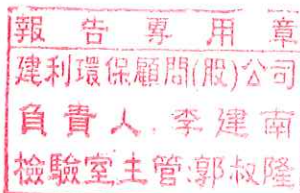 報告專用章
建利環保顧問(股)公司
負責人:李建南
檢驗室主管:郭叔隆